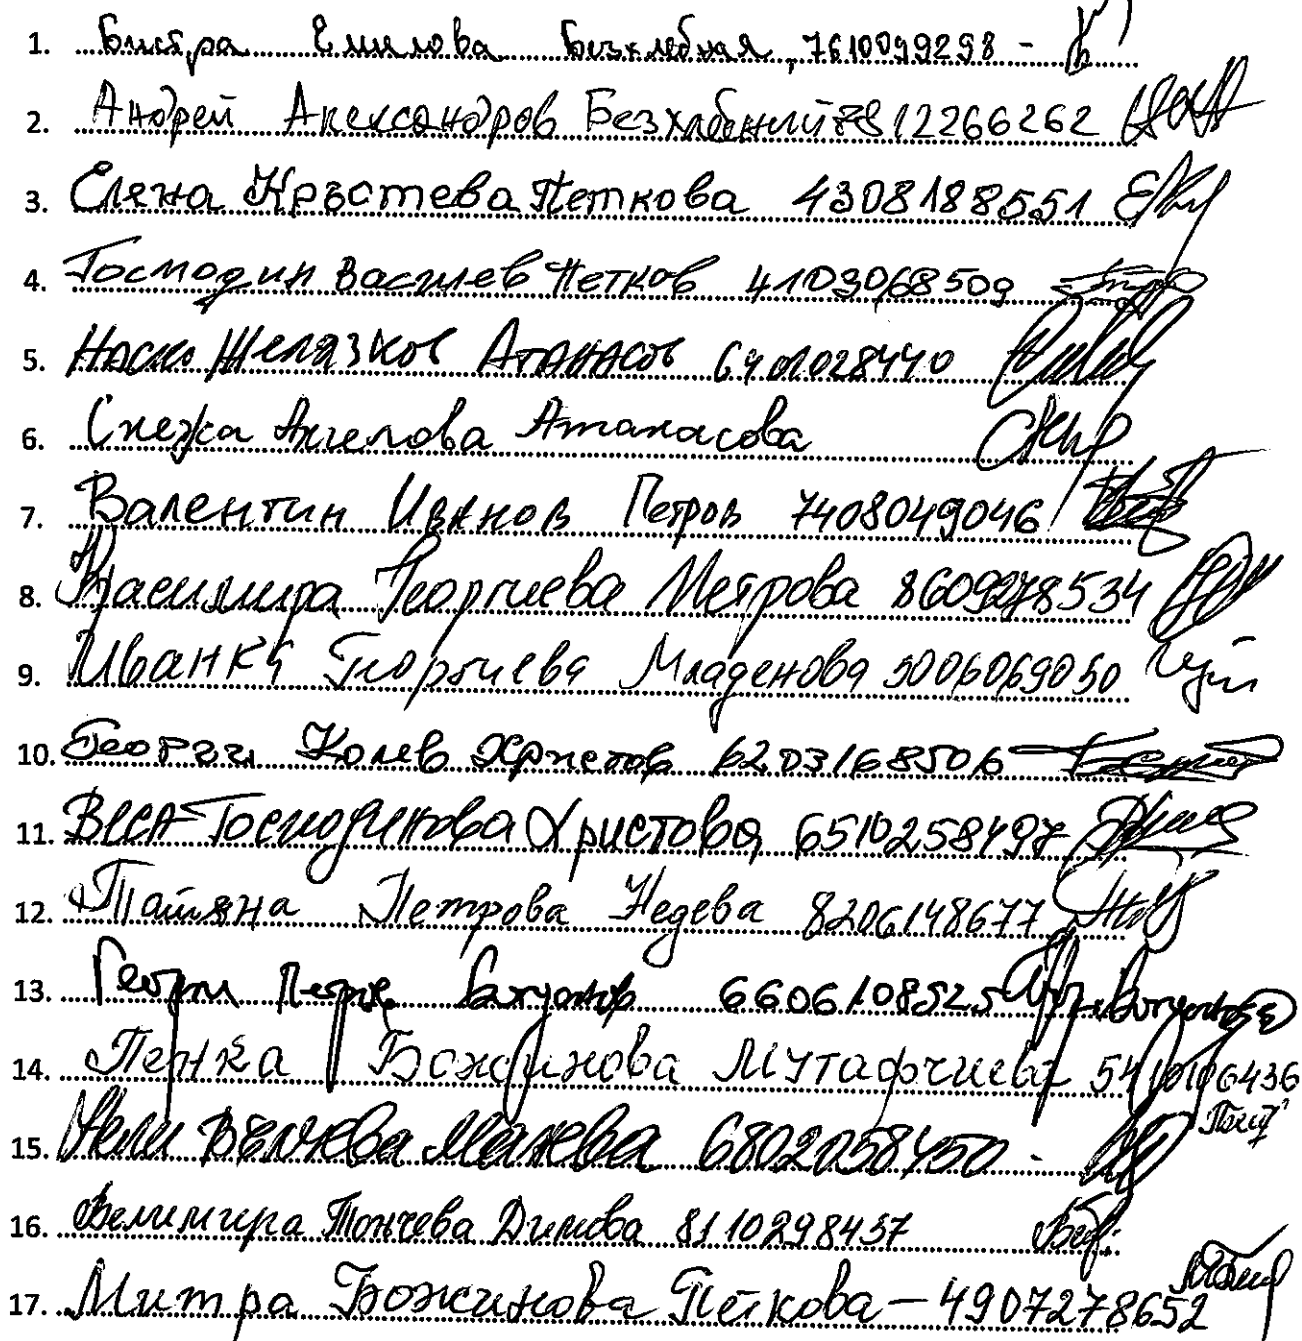 1. Бистра Емилова Безхлебная, 7610099298 -
2. Андрей Александров Безхлебний 7812266262
3. Елена Кръстева Петкова 4308188551
4. Господин Василев Петков 4103068509
5. Наско Желязков Атанасов 6401028440
6. Снежа Ангелова Атанасова
7. Валентин Иванов Петров 7408049046
8. Красимира Георгиева Петрова
9. Иванка Георгиева Младенова 5006069050
10. Георги Колев Христов 6203168506
11. Веса Господинова Христова 6510258497
12. Татяна Петрова Недева 8206148677
13. Георги Петров 6606108525
14. Пенка Божинова Мутафчиева
15. Нели Вълчева 6802058450 -
16. Велимира Тончева Димова 8110298437
17. Митра Божинова Петкова - 4907278652